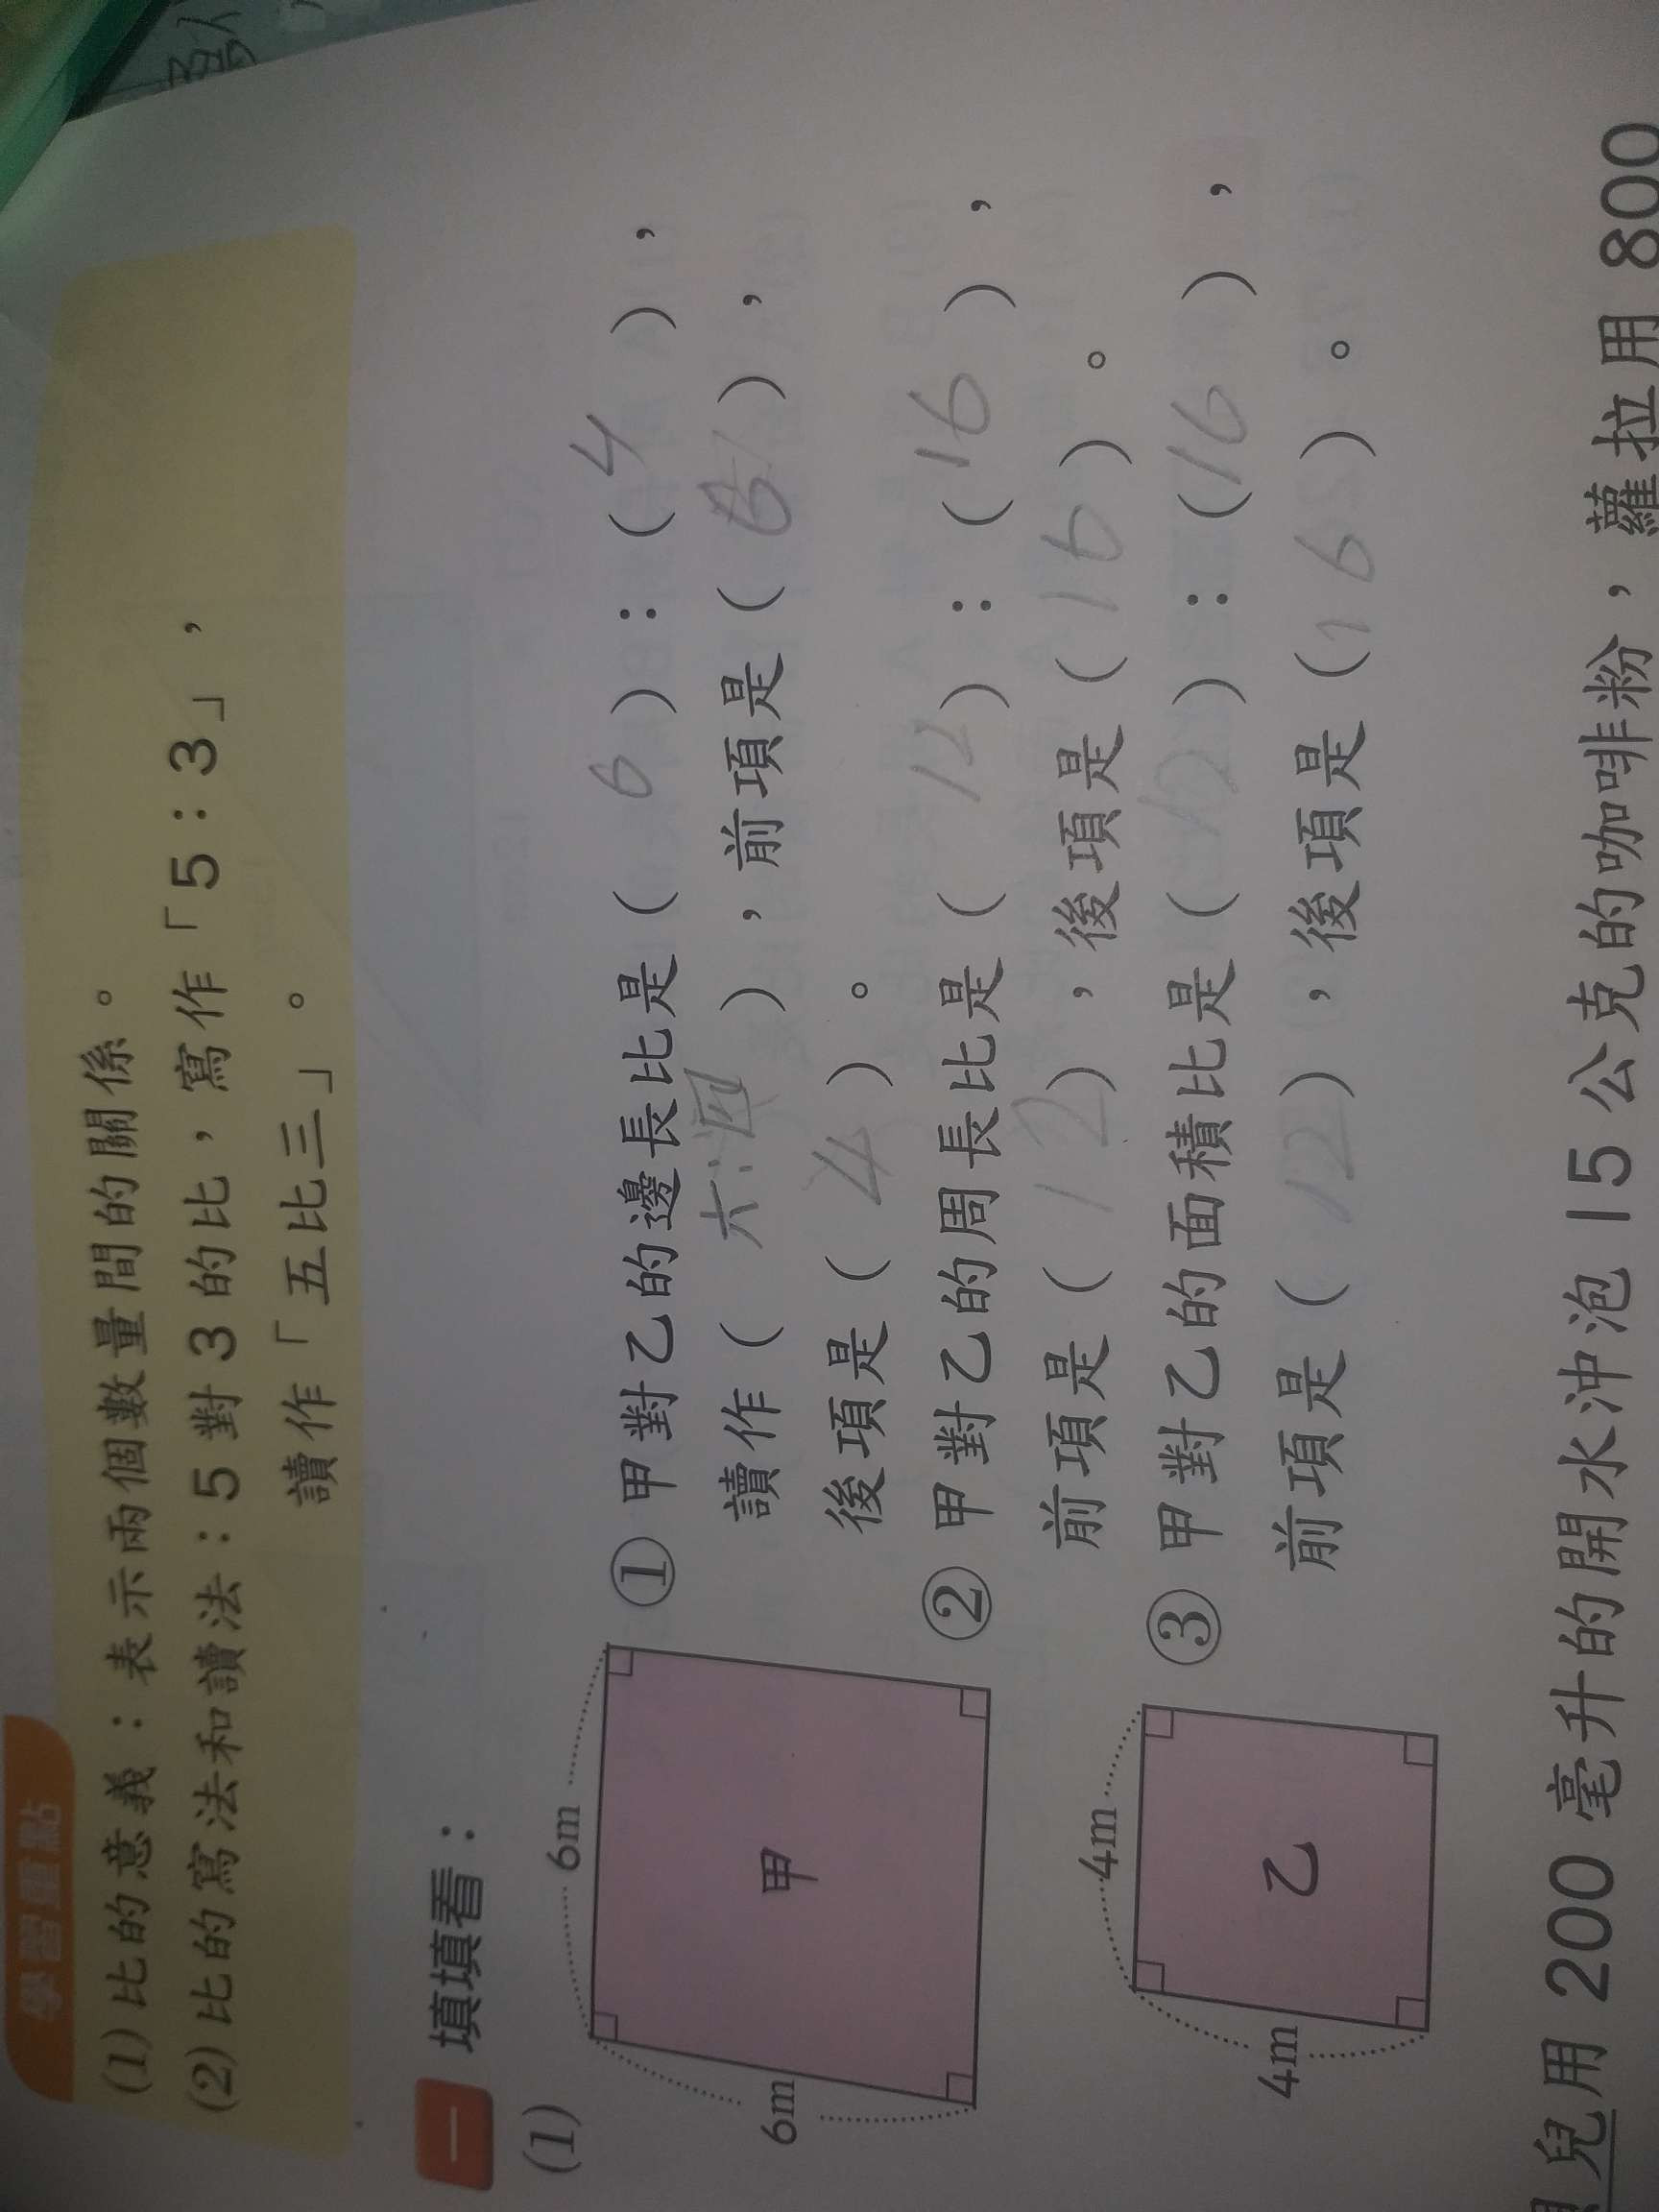 學習重點
(1)比的意義：表示兩個數量間的關係。
(2)比的寫法和讀法：5對3的比，寫作「5：3」，
讀作「五比三」。
一 填填看：
(1)
6m
6m
甲
4m
4m
乙
① 甲對乙的邊長比是( 6 )：( 4 )，
讀作( 六:四 )，前項是( 6 )，
後項是( 4 )。
② 甲對乙的周長比是( 12 )：( 16 )，
前項是( 12 )，後項是( 16 )。
③ 甲對乙的面積比是( 12 )：( 16 )，
前項是( 12 )，後項是( 16 )。
兒用 200 毫升的開水沖泡 15 公克的咖啡粉，蘿拉用 800